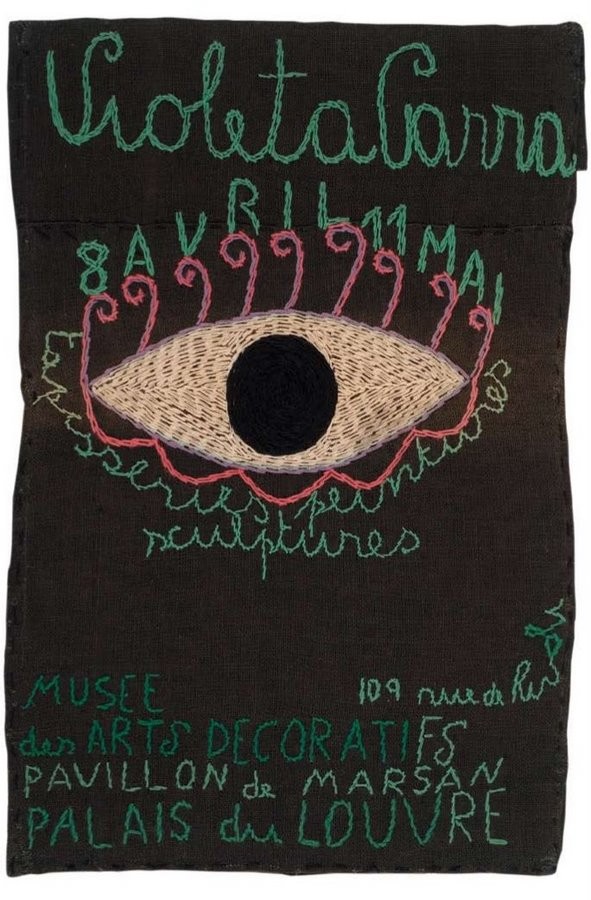 Violeta Parra
8 AVRIL 11 MAI
tapisseries peintures
sculptures
109 rue de Rivoli
MUSEE
des ARTS DECORATIFS
PAVILLON de MARSAN
PALAIS du LOUVRE